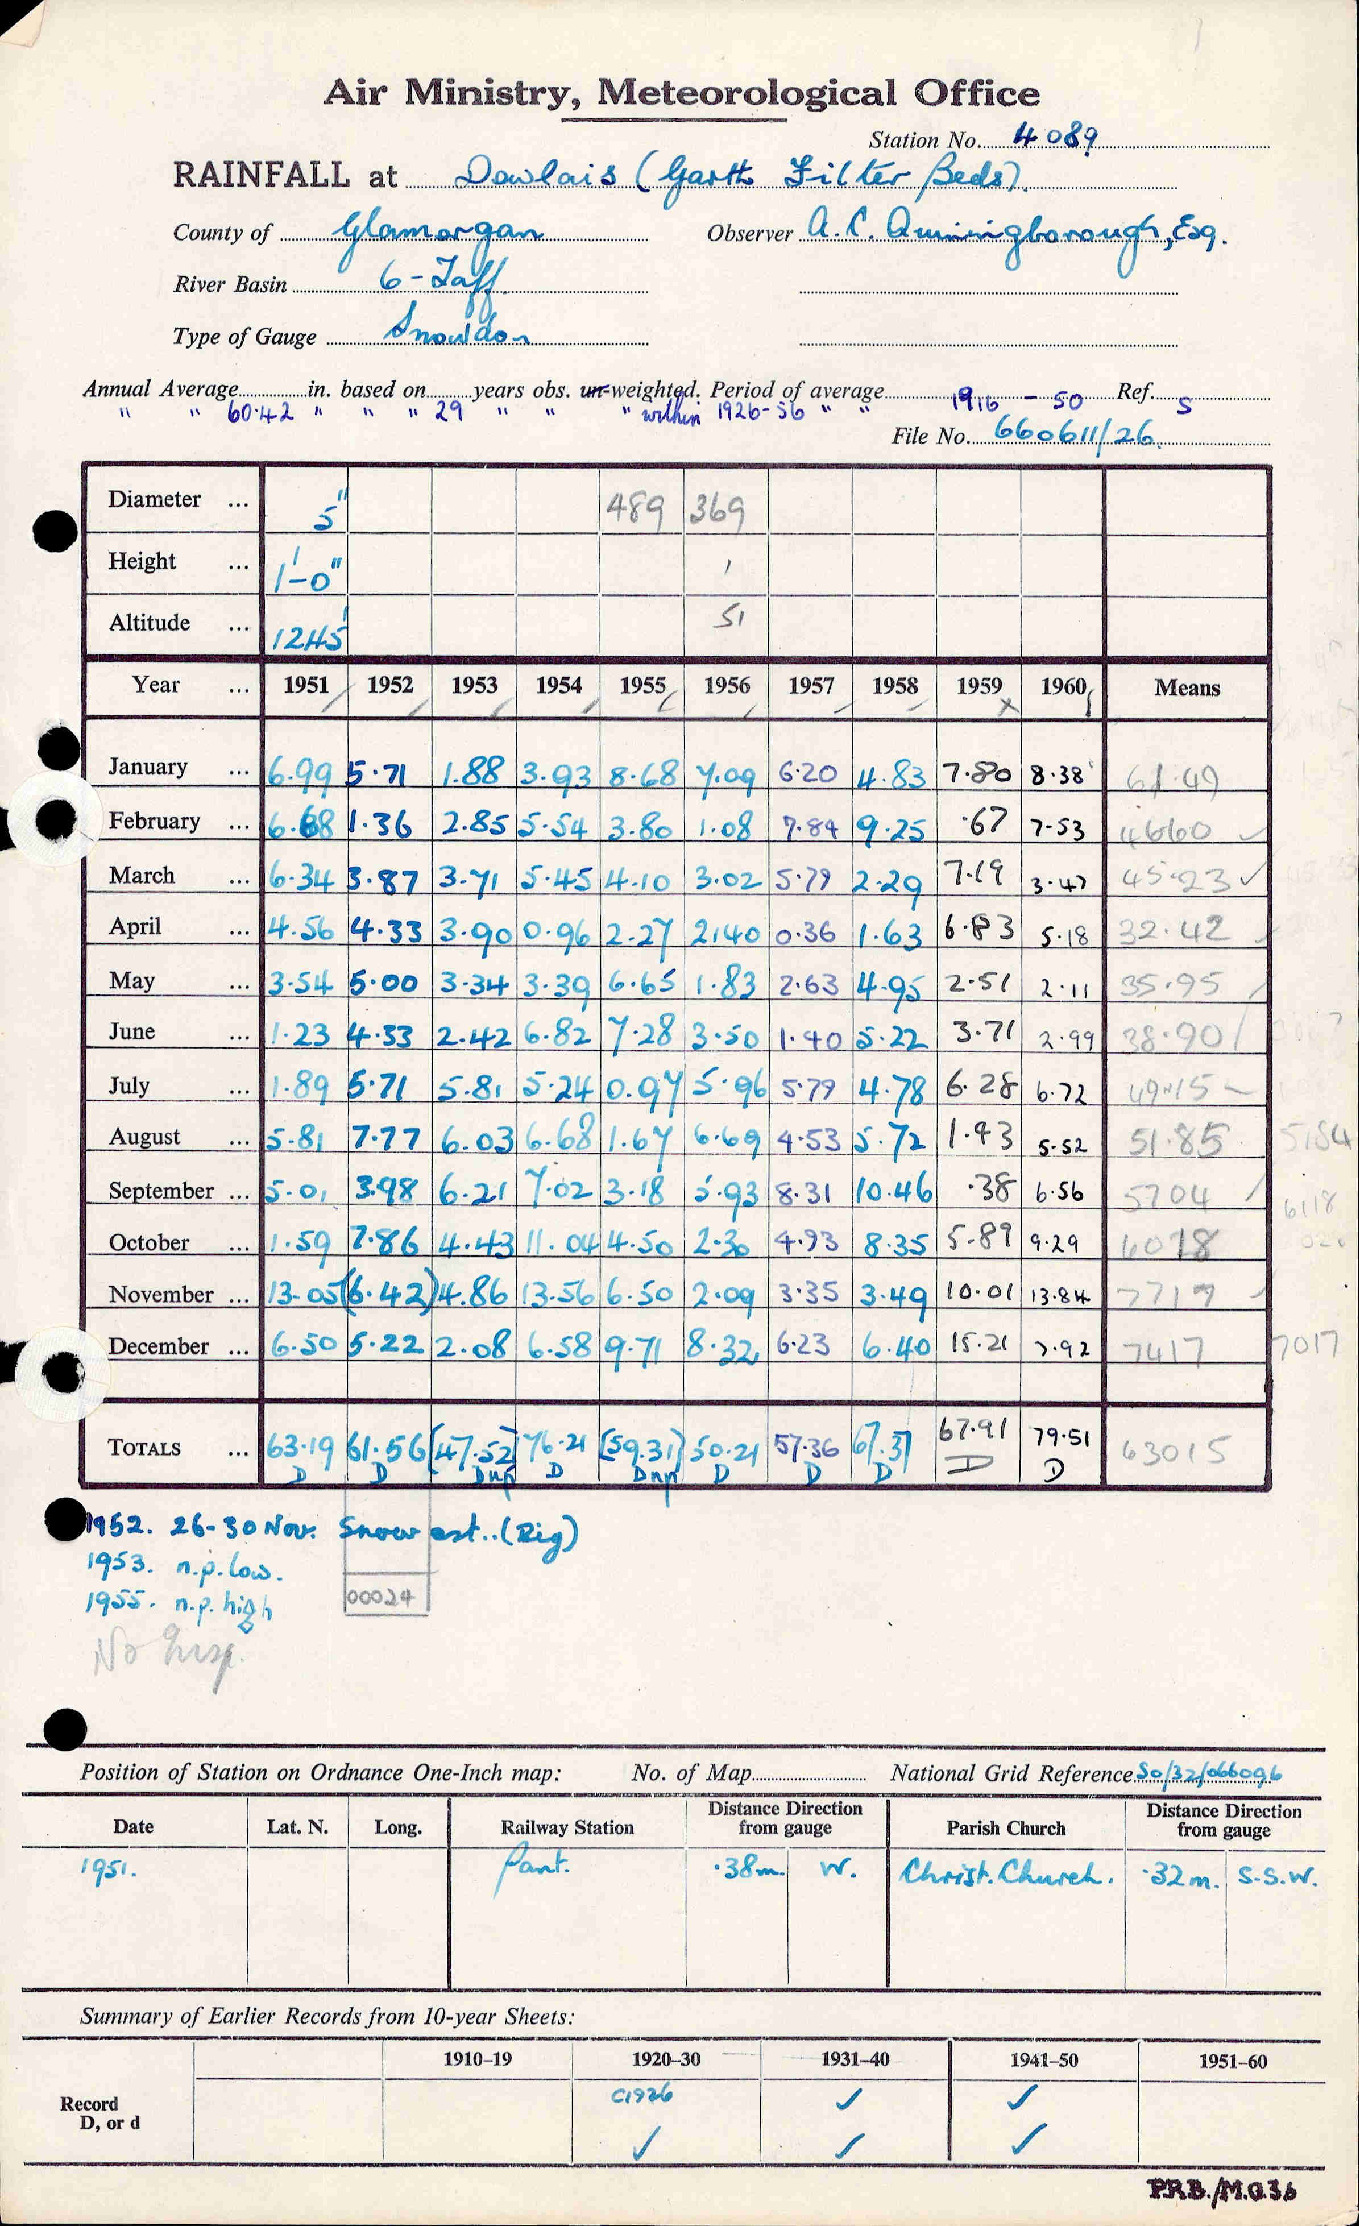 Air Ministry, Meteorological Office
Station No. 4089
RAINFALL at Dowlais (Garth Filter Beds).
County of Glamorgan Observer A. C. Quiningborough, Esq.
River Basin 6 - Taff.
Type of Gauge Snowdon
Annual Average in. based on years obs. un-weighted. Period of average 1916 - 50 Ref. S
" " 60.42 " " " 29 " " " within 1926-56 " "
File No. 660611/26.
Diameter ... 5" 489 369
Height ... 1'-0" 1
Altitude ... 1245' 51
Year ... 1951 1952 1953 1954 1955 1956 1957 1958 1959 1960 Means
January ... 6.99 5.71 1.88 3.93 8.68 7.09 6.20 4.83 7.80 8.38 61.49
February ... 6.68 1.36 2.85 5.54 3.80 1.08 7.84 9.25 .67 7.53 4660
March ... 6.34 3.87 3.71 5.45 4.10 3.02 5.79 2.29 7.19 3.47 45.23
April ... 4.56 4.33 3.90 0.96 2.27 2.40 0.36 1.63 6.83 5.18 32.42
May ... 3.54 5.00 3.34 3.39 6.65 1.83 2.63 4.95 2.51 2.11 35.95
June ... 1.23 4.33 2.42 6.82 7.28 3.50 1.40 5.22 3.71 2.99 38.90
July ... 1.89 5.71 5.81 5.24 0.97 5.96 5.79 4.78 6.28 6.72 49.15
August ... 5.81 7.77 6.03 6.68 1.67 6.69 4.53 5.72 1.43 5.52 51.85 5184
September ... 5.01 3.98 6.21 7.02 3.18 5.93 8.31 10.46 .38 6.56 5704
October ... 1.59 7.86 4.43 11.04 4.50 2.30 4.93 8.35 5.89 9.29 6018 6118
November ... 13.05 (6.42) 4.86 13.56 6.50 2.09 3.35 3.49 10.01 13.84 7717
December ... 6.50 5.22 2.08 6.58 9.71 8.32 6.23 6.40 15.21 7.92 7417 7017
TOTALS ... 63.19 61.56 [47.52] 76.21 [59.31] 50.21 57.36 67.37 67.91 79.51 63015
D D Dnp D Dnp D D D D D
1952. 26-30 Nov. Snow est.. (Rig)
1953. n.p. low.
1955. n.p. high
00024
No Insp.
Position of Station on Ordnance One-Inch map: No. of Map National Grid Reference SO/32/066096
Date Lat. N. Long. Railway Station Distance Direction from gauge Parish Church Distance Direction from gauge
1951. Pant. .38m. W. Christ. Church. .32 m. S.S.W.
Summary of Earlier Records from 10-year Sheets:
1910–19 1920–30 1931–40 1941–50 1951–60
Record D, or d
C1926 ✓ ✓
✓ ✓ ✓
P.R.B./M.O.36